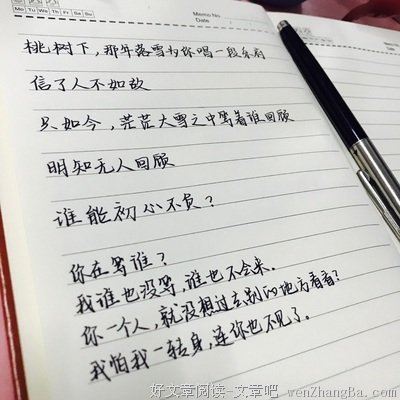 Memo No.
Mo Tu We Th Fr Sa Su
Date
桃树下，那年落雪为你唱一段乐府
信了人不如故
只如今，茫茫大雪之中等着谁回顾
明知无人回顾
谁能初心不负？
你在等谁？
我谁也没等，谁也不会来。
你一个人，就没想过去别的地方看看？
我怕我一转身，连你也不见了。
好文章阅读-文章吧-wenZhangBa.com